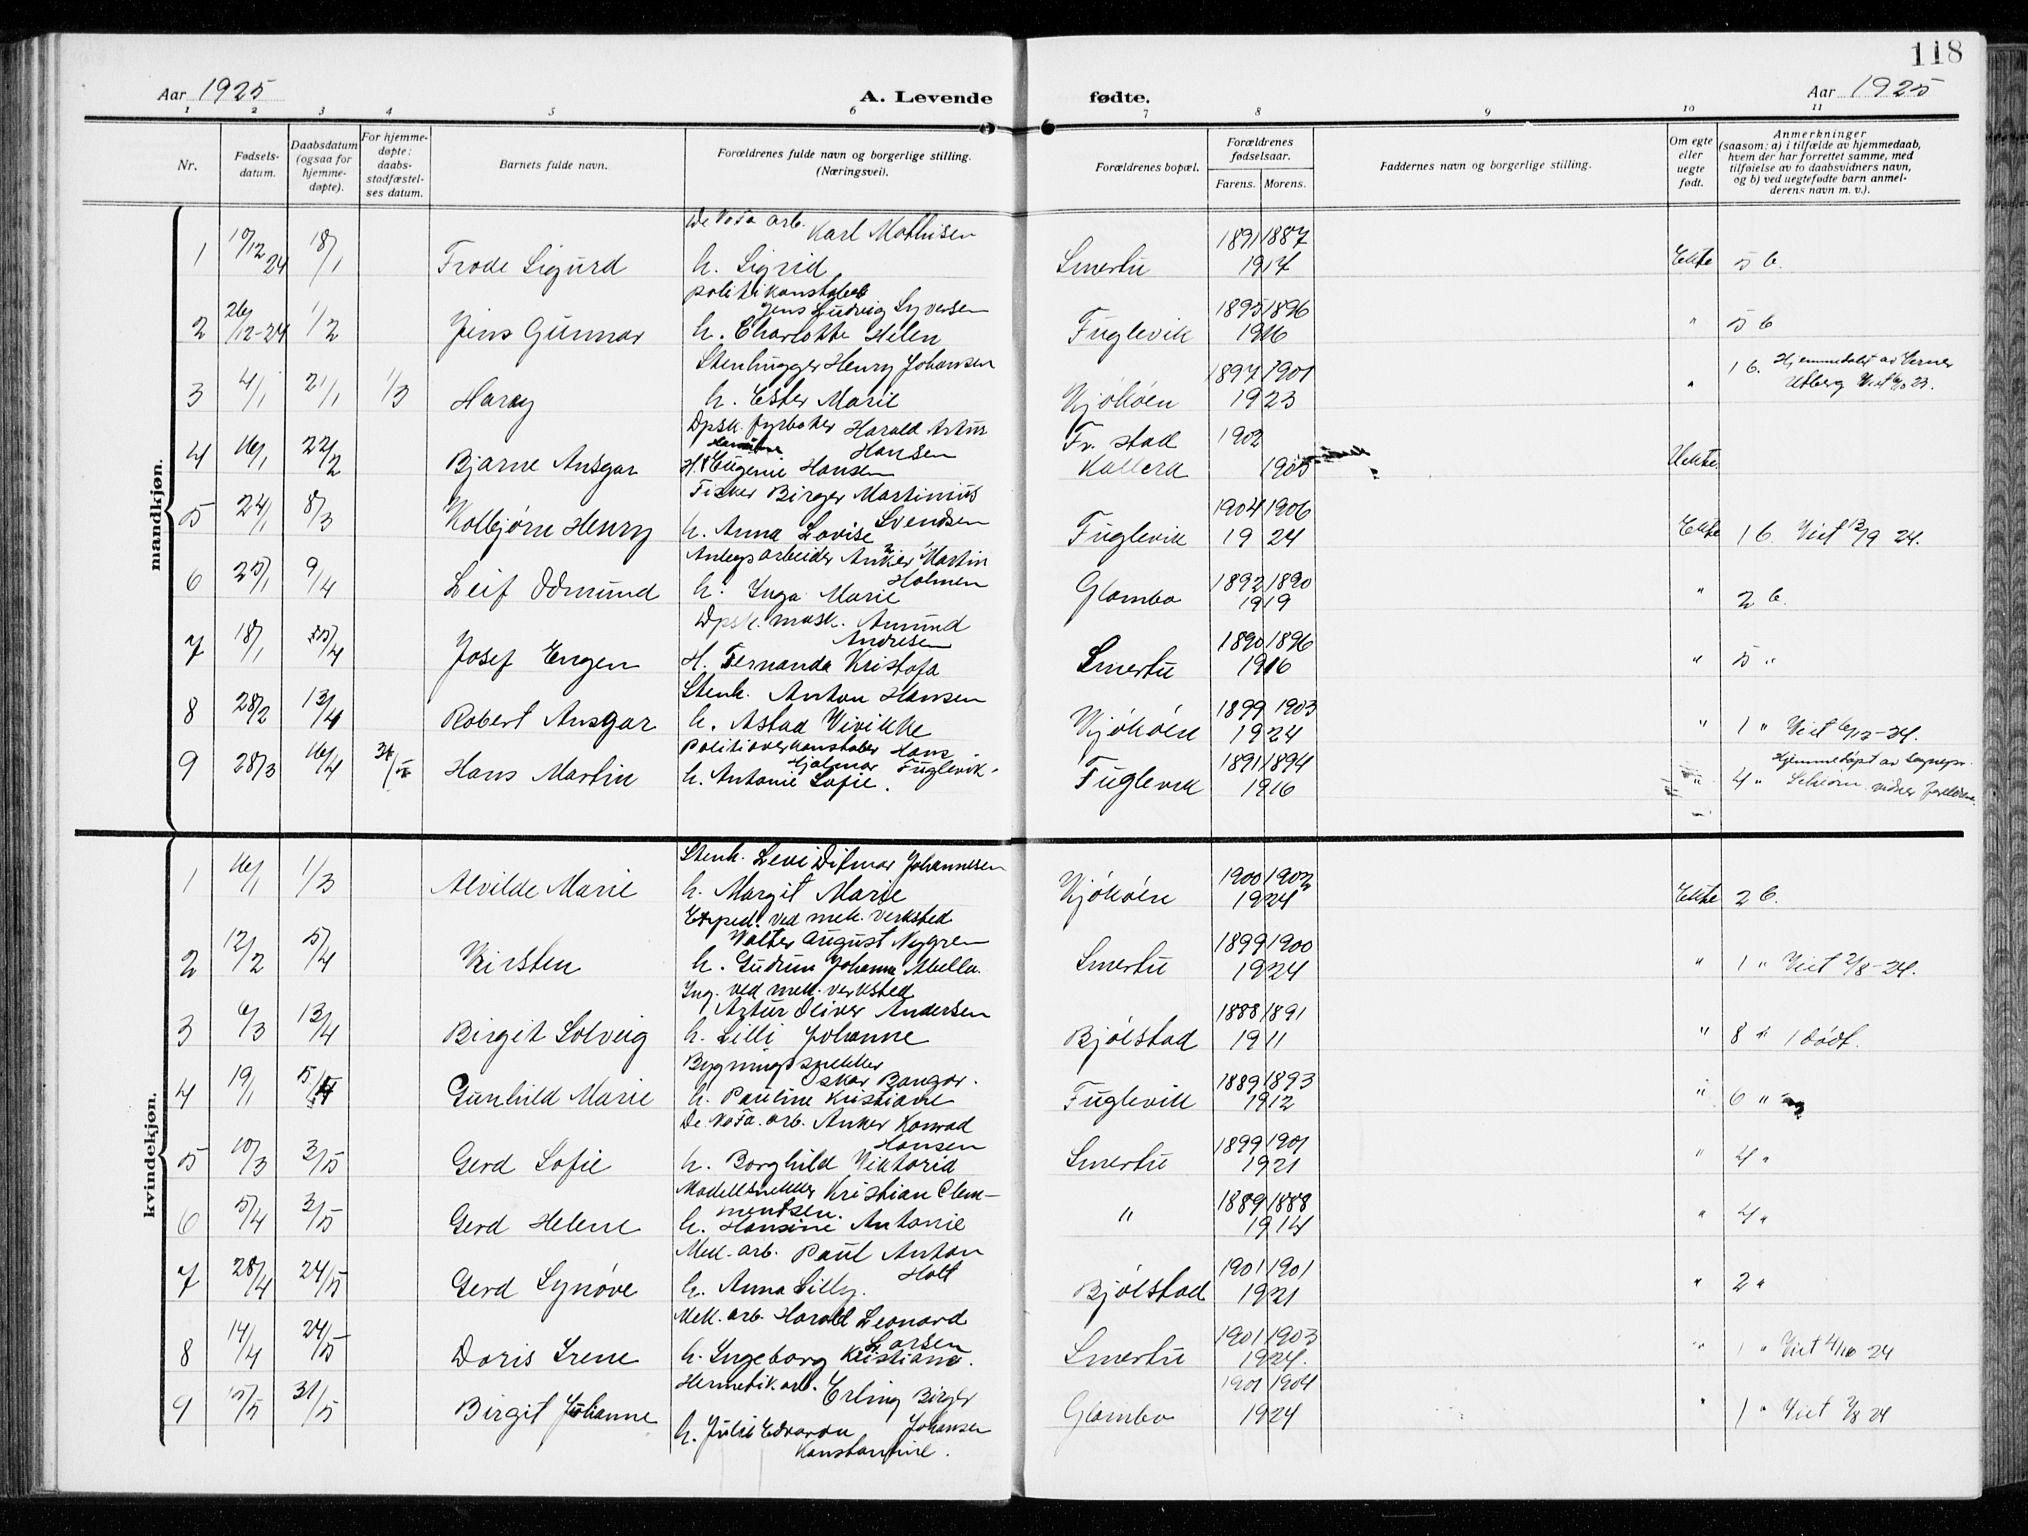 118
Aar 1925 A. Levende fødte. Aar 1925
1 2 3 4 5 6 7 8 9 10 11
Nr. Fødsels-datum. Daabsdatum (ogsaa for hjemme-døpte). For hjemme-døpte: daabs-stadfæstel-ses datum. Barnets fulde navn. Forældrenes fulde navn og borgerlige stilling. (Næringsvei). Forældrenes bopæl. Forældrenes fødselsaar. Farens. Morens. Faddernes navn og borgerlige stilling. Om egte eller uegte født. Anmerkninger (saasom: a) i tilfælde av hjemmedaab, hvem der har forrettet samme, med tilføielse av to daabsvidners navn, og b) ved uegtefødte barn anmel-derens navn m. v.).
mandkjøn.
De NoFa arb. Karl Mathisen
1 10/12 24 18/1 Frode Sigurd h. Sigrid Smertu 1891 1887 1917 Ekte 5 b.
politikonstabel Jens Ludvig Syversen
2 26/12-24 1/2 Jens Gunnar h. Charlotte Helen Fuglevik 1895 1896 1916 " 5 b
Stenhugger Henry Johansen
3 4/1 21/1 1/3 Harry h. Ester Marie Kjøkøen 1897 1901 1923 " 1 b. Hjemmedøbt av Verner Utberg Viet 23.
Dpsk. fyrbøter Harald Artur Hansen
4 16/1 22/2 Bjarne Ansgar Eugenie Hansen Fr. stad Kallera 1902 1905 Uekte
Fisker Birger Martinius Svendsen
5 24/1 8/3 Kolbjørn Henry h. Anna Lovise Fuglevik 1904 1906 1924 Ekte 1 b. Viet 13/9 24.
Anlegsarbeider Anker Martin Holmen
6 25/1 9/4 Leif Odmund h. Inga Marie Glombo 1892 1890 1919 " 2 b.
Dpsk. mask. Amund Andresen
7 18/1 /4 Josef Engen H. Fernanda Kristofa Smertu 1890 1896 1916 " 5 "
Stenh. Anton Hansen
8 28/2 13/4 Robert Ansgar h. Astad Vivikke Kjøkøen 1899 1903 1924 " 1 " Viet 6/12-24.
Politioverkonstabel Hans Hjalmar Fuglevik
9 28/3 16/4 31/5 Hans Martin h. Antonie Sofie. Fuglevik 1891 1894 1916 " 4 " Hjemmedøpt av Sognepr. vidner foreldrene.
kvindekjøn.
Stenh. Levi Ditmar Johannesen
1 16/1 1/3 Alvilde Marie h. Margit Marie Kjøkøen 1900 1902 1924 Ekte 2 b.
Exped. ved mek. verksted Walter August Nygren
2 12/2 5/4 Kirsten h. Gudrun Johanna Abella. Smertu 1899 1900 1924 " 1 " Viet 2/8-24.
Ing. ved mek. verksted Artur Oliver Andersen
3 6/3 13/4 Birgit Solveig h. Lilli Johanne Bjølstad 1888 1891 1911 " 8 " 1 dødf.
Bygningssnekker Oskar Bangor.
4 19/1 5/ Gunhild Marie h. Pauline Kristiane Fuglevik 1889 1893 1912 " 6 "
De NoFa. arb. Anker Konrad Hansen
5 10/3 3/5 Gerd Sofie h. Borghild Viktoria Smertu 1899 1901 1921 " 4 "
Modellsnekker Kristian Clem-mentsen.
6 5/4 3/5 Gerd Helene h. Hansine Antonie " 1889 1888 1914 " 4 "
Mek. arb. Paul Anton Holt
7 28/4 24/5 Gerd Synøve h. Anna Lilly. Bjølstad 1901 1901 1921 " 2 "
Mek. arb. Harald Leonard Larsen
8 14/4 24/5 Doris Irene h. Ingeborg Kristiana. Smertu 1901 1903 1924. " 1 " Viet 4/10 24
Hermetik.arb. Erling Birger Johansen
9 5/5 31/5 Birgit Johanne h. Julie Edvarda Konstantine. Glombo 1901 1904 1924 " 1 " Viet 2/8 24